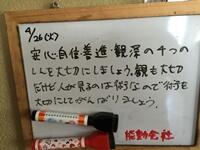 4/26(火)
安心・自信・善進・観深の4つの
しんを大切にしましょう。観も大切
だけど人が見るのは術なので術を
大切にしてがんばりましょう。
能動会社